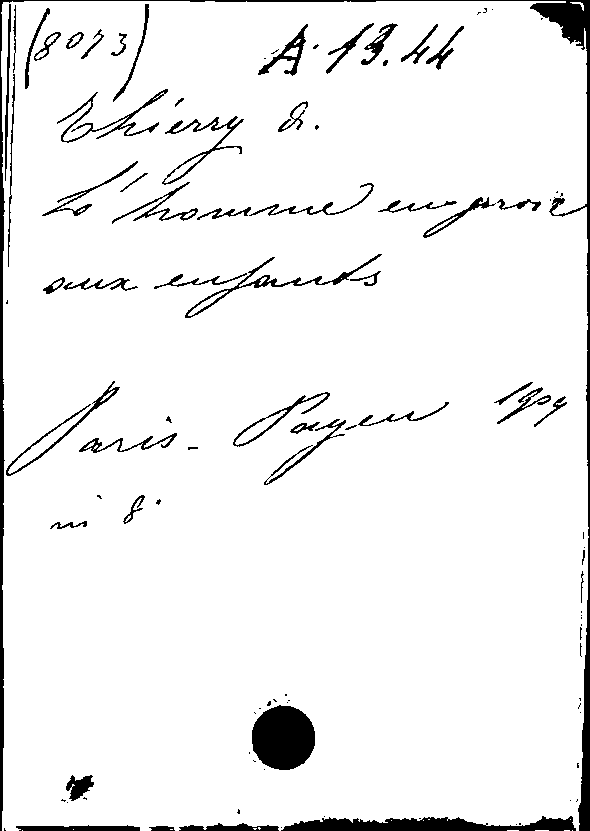 (8073) A. 13.44
Thierry A.
L'homme en proie
aux enfants
Paris - Payen 1909
in 8°